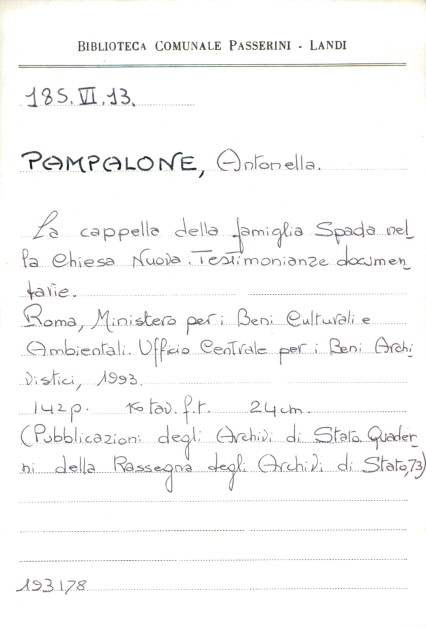 BIBLIOTECA COMUNALE PASSERINI - LANDI
185.VI.13.
PAMPALONE, Antonella.
La cappella della famiglia Spada nel
la Chiesa Nuova. Testimonianze documen
tarie.
Roma, Ministero per i Beni Culturali e
Ambientali. Ufficio Centrale per i Beni Archi
vistici, 1993.
142 p. 16 tav. f.t. 24 cm.
(Pubblicazioni degli Archivi di Stato. Quader
ni della Rassegna degli Archivi di Stato, 73)
193178